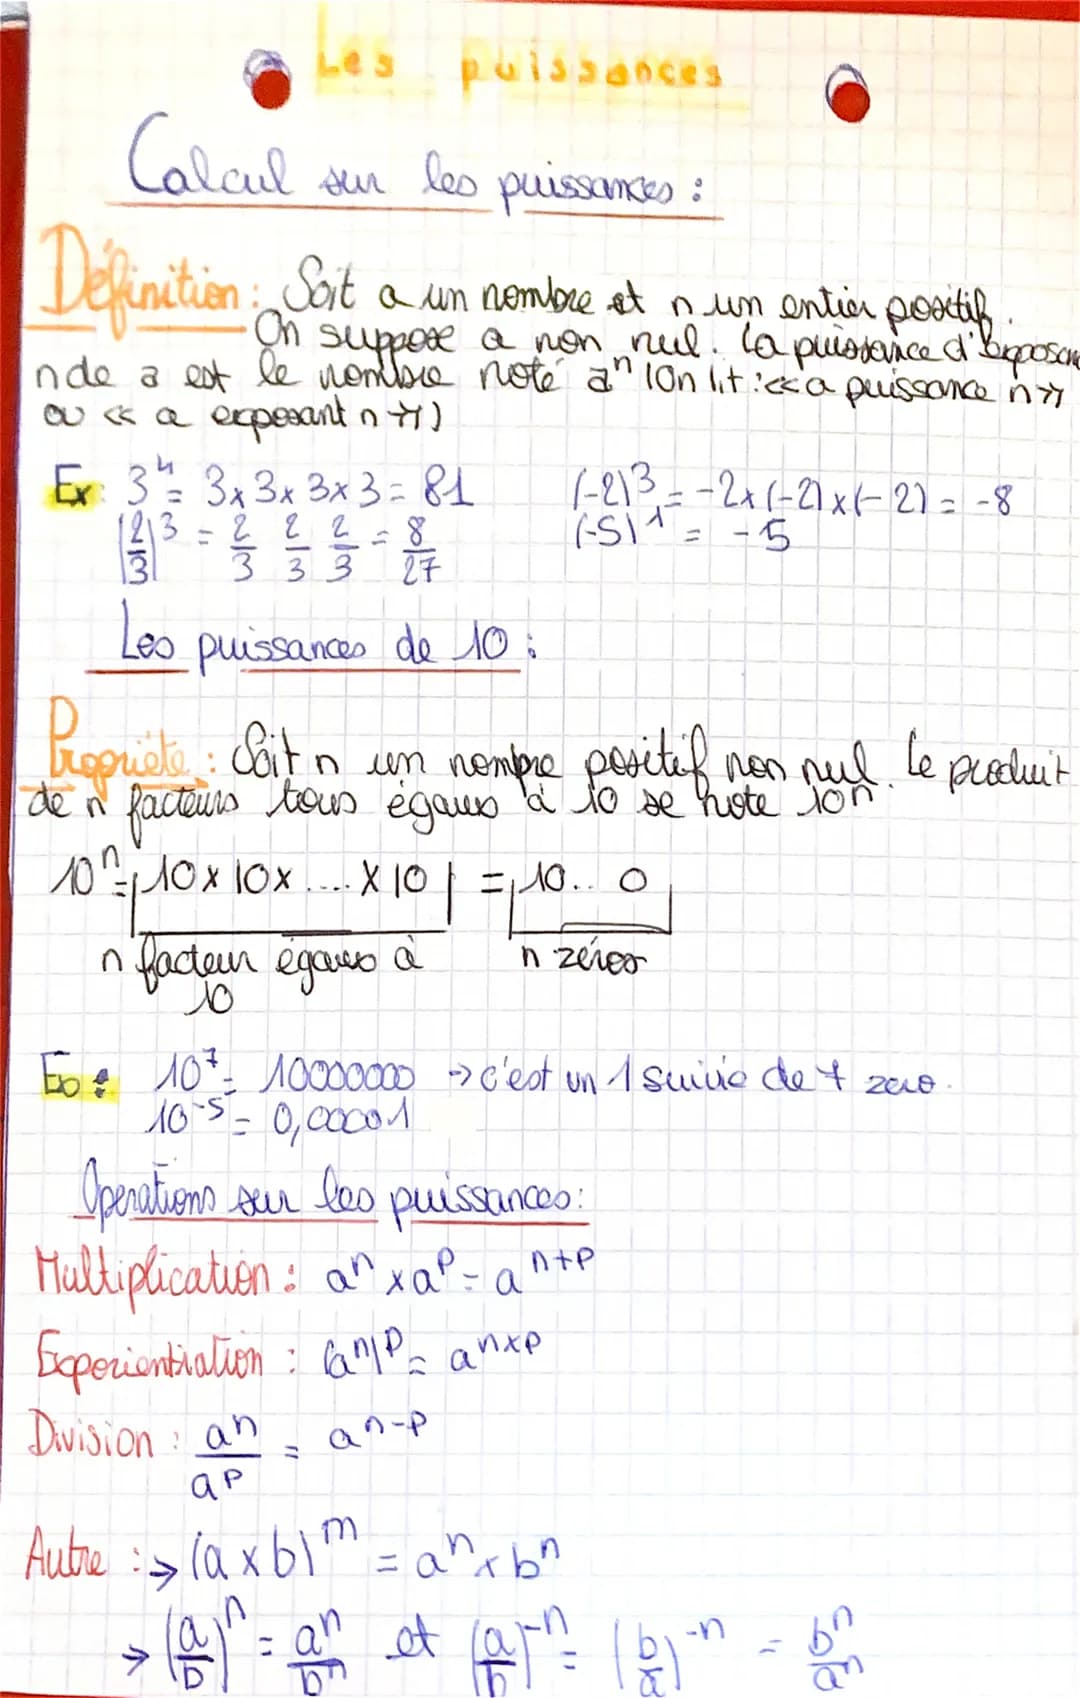 Les puissances
Calcul sur les puissances :
Définition : Soit a un nombre et n un entier positif.
On suppose a non nul. La puissance d'exposan
n de a est le nombre noté aⁿ (On lit : << a puissance n >>
ou << a exposant n >>)
Ex : 3⁴ = 3 x 3 x 3 x 3 = 81 (-2)³ = -2 x (-2) x (-2) = -8
(2/3)³ = 2/3 2/3 2/3 = 8/27 (-5)¹ = -5
Les puissances de 10 :
Propriété : Soit n un nombre positif non nul. Le produit
de n facteurs tous égaux à 10 se note 10n
10ⁿ = 10 x 10 x .... x 10 = 10.. 0
n facteur égaux à n zéros
10
Ex : 10⁷ = 10000000 → c'est un 1 suivie de 7 zero.
10⁻⁵ = 0,00001
Operations sur les puissances :
Multiplication : aⁿ x aᵖ = aⁿ⁺ᵖ
Exponentiation : (aⁿ)ᵖ = aⁿˣᵖ
Division : aⁿ/aᵖ = aⁿ⁻ᵖ
Autre : → (a x b)ᵐ = aⁿ x bⁿ
→ (a/b)ⁿ = aⁿ/bⁿ et (a/b)⁻ⁿ = (b/a)⁻ⁿ = bⁿ/aⁿ